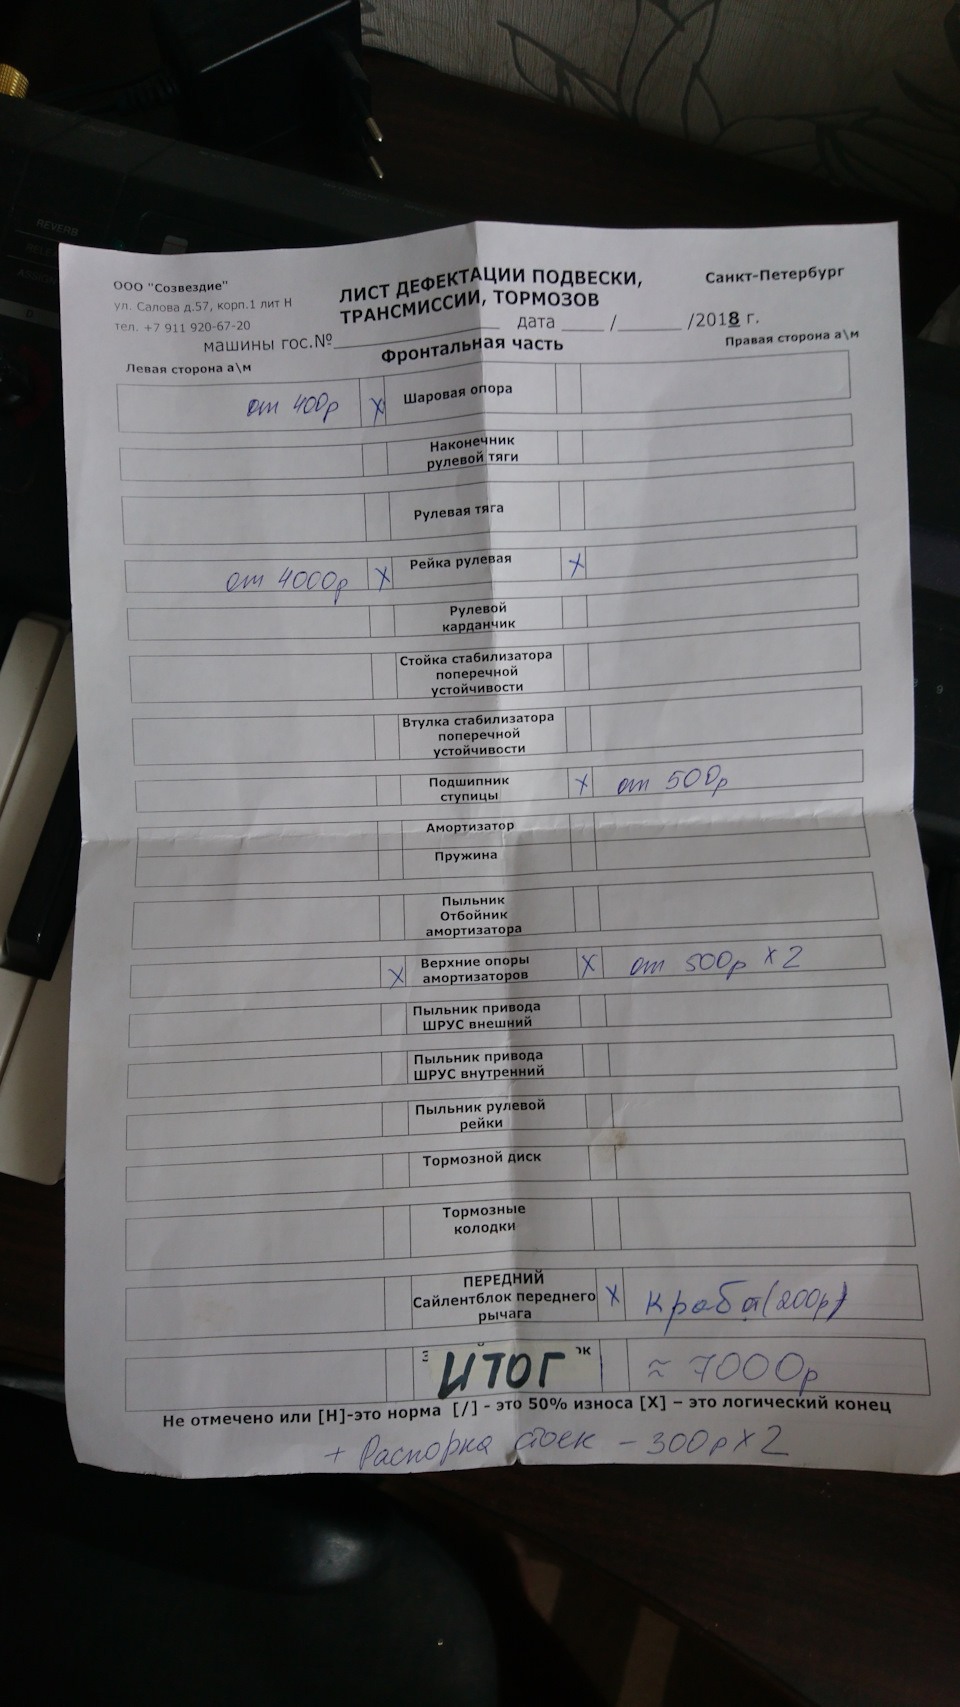 REVERB
ООО "Созвездие"
ул. Салова д.57, корп.1 лит Н
тел. +7 911 920-67-20
ЛИСТ ДЕФЕКТАЦИИ ПОДВЕСКИ,
ТРАНСМИССИИ, ТОРМОЗОВ
Санкт-Петербург
машины гос.№_______________ дата ____/______/2018 г.
Левая сторона а\м Фронтальная часть Правая сторона а\м
от 400р X Шаровая опора
Наконечник
рулевой тяги
Рулевая тяга
от 4000р X Рейка рулевая X
Рулевой
карданчик
Стойка стабилизатора
поперечной
устойчивости
Втулка стабилизатора
поперечной
устойчивости
Подшипник
ступицы X от 500р
Амортизатор
Пружина
Пыльник
Отбойник
амортизатора
X Верхние опоры
амортизаторов X от 500р x 2
Пыльник привода
ШРУС внешний
Пыльник привода
ШРУС внутренний
Пыльник рулевой
рейки
Тормозной диск
Тормозные
колодки
ПЕРЕДНИЙ
Сайлентблок переднего
рычага X краба (200р)
ИТОГ ≈ 7000р
Не отмечено или [Н]-это норма [/] - это 50% износа [X] – это логический конец
+ Распорка стоек - 300р x 2